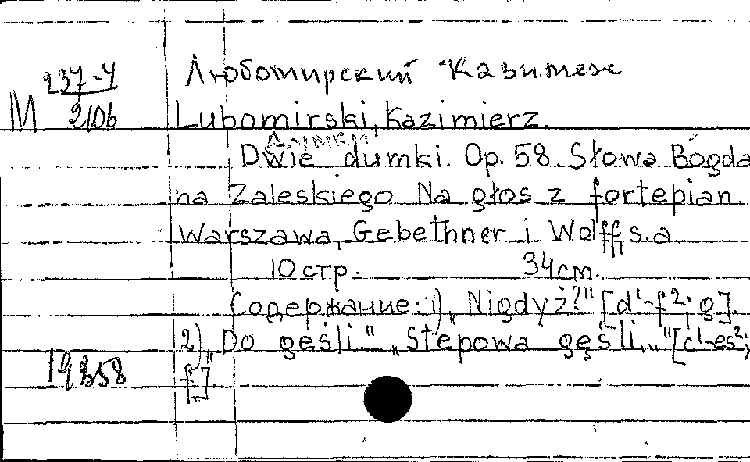 237-4 Любомирский Казимеж
M 2106 Lubomirski, Kazimierz.
Думки
Dwie dumki. Op. 58. Słowa Bogda
na Zaleskiego Na głos z fortepian.
Warszawa, Gebethner i Wolff, s.a
10 стр. 34 cm.
Содержание: 1) „Nigdyż?" [d¹-f²; g].
2) Do gęśli" „Stepowa gęśli..." [c¹-es²;
19358 f].